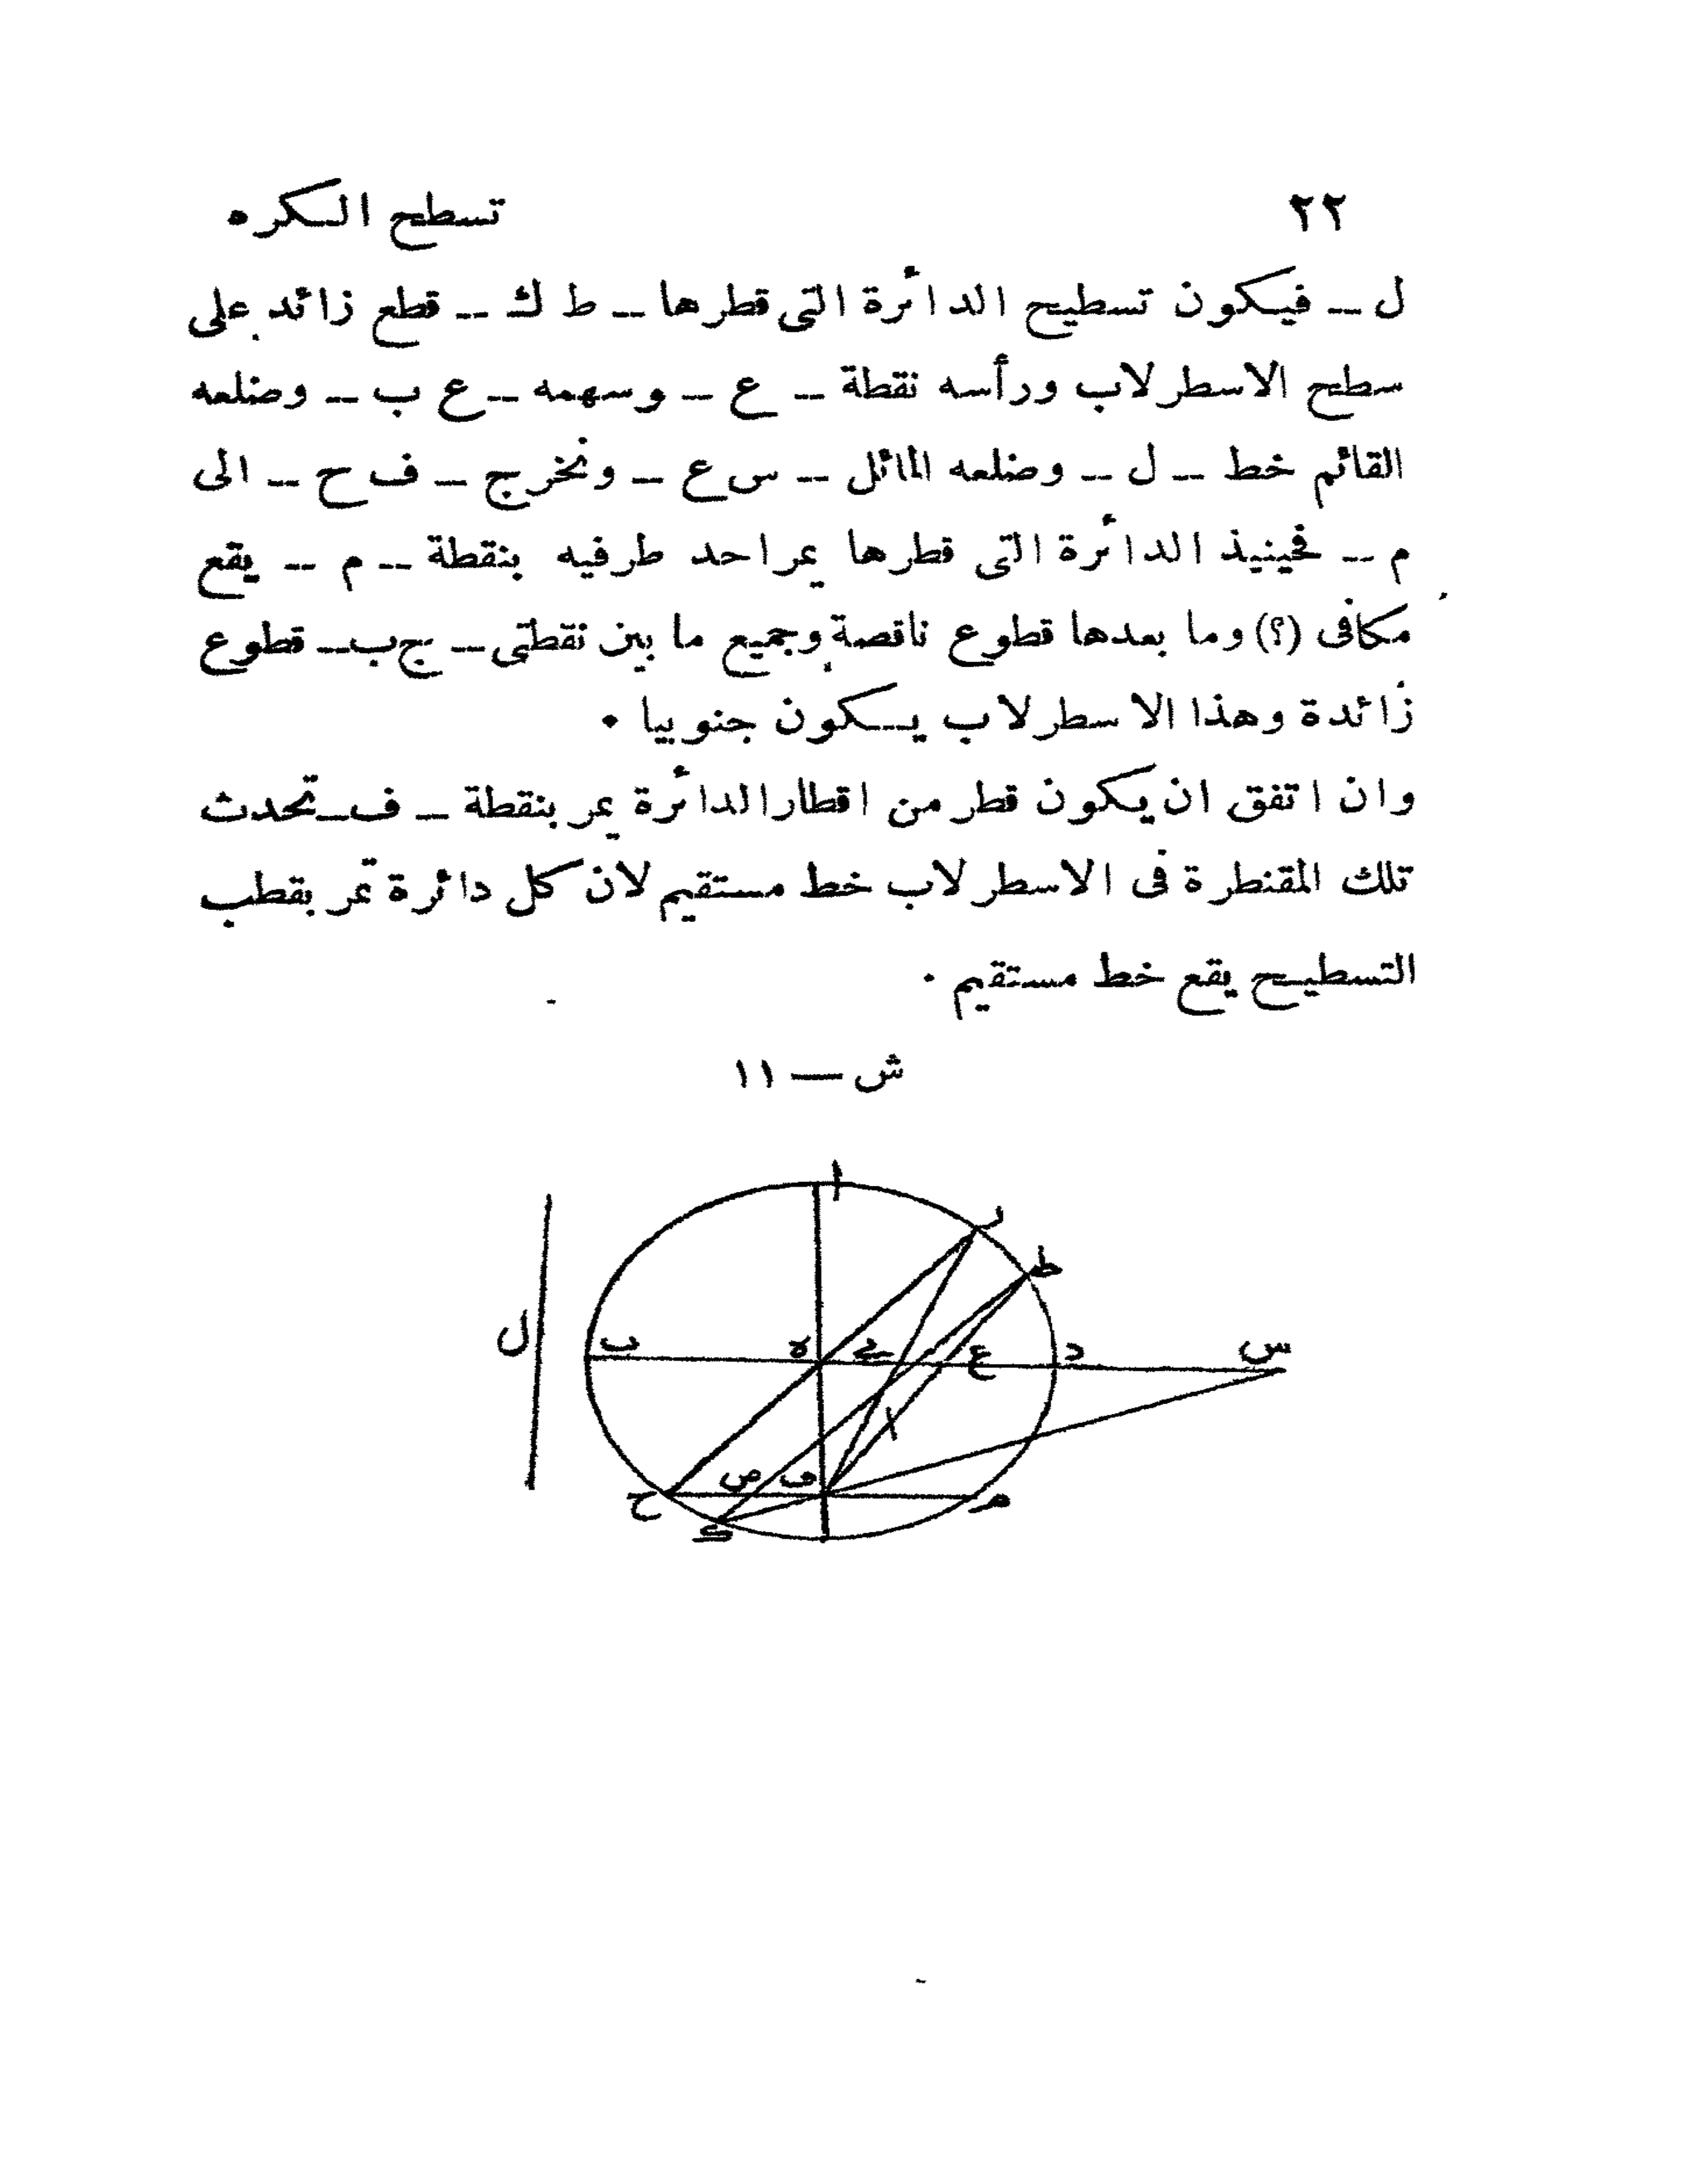 ٢٢ تسطح الكره
ل -- فيكون تسطيح الدائرة التى قطرها -- ط ك -- قطع زائد على
سطح الاسطرلاب ورأسه نقطة -- ع -- وسهمه -- ع ب -- وضلعه
القائم خط -- ل -- وضلعه المائل -- س ع -- ونخرج -- ف ح -- الى
م -- فحينيذ الدائرة التى قطرها يمر احد طرفيه بنقطة -- م -- يقع
مكافى (؟) وما بعدها قطوع ناقصة وجميع ما بين نقطتى -- ج ب -- قطوع
زائدة وهذا الاسطرلاب يكون جنوبيا ٠
وان اتفق ان يكون قطر من اقطار الدائرة يمر بنقطة -- ف -- تحدث
تلك المقنطرة فى الاسطرلاب خط مستقيم لان كل دائرة تمر بقطب
التسطيح يقع خط مستقيم ٠
ش — ١١
ا
ر
ط
ل
ب ه ى ع د س
ح ص ف م
ك